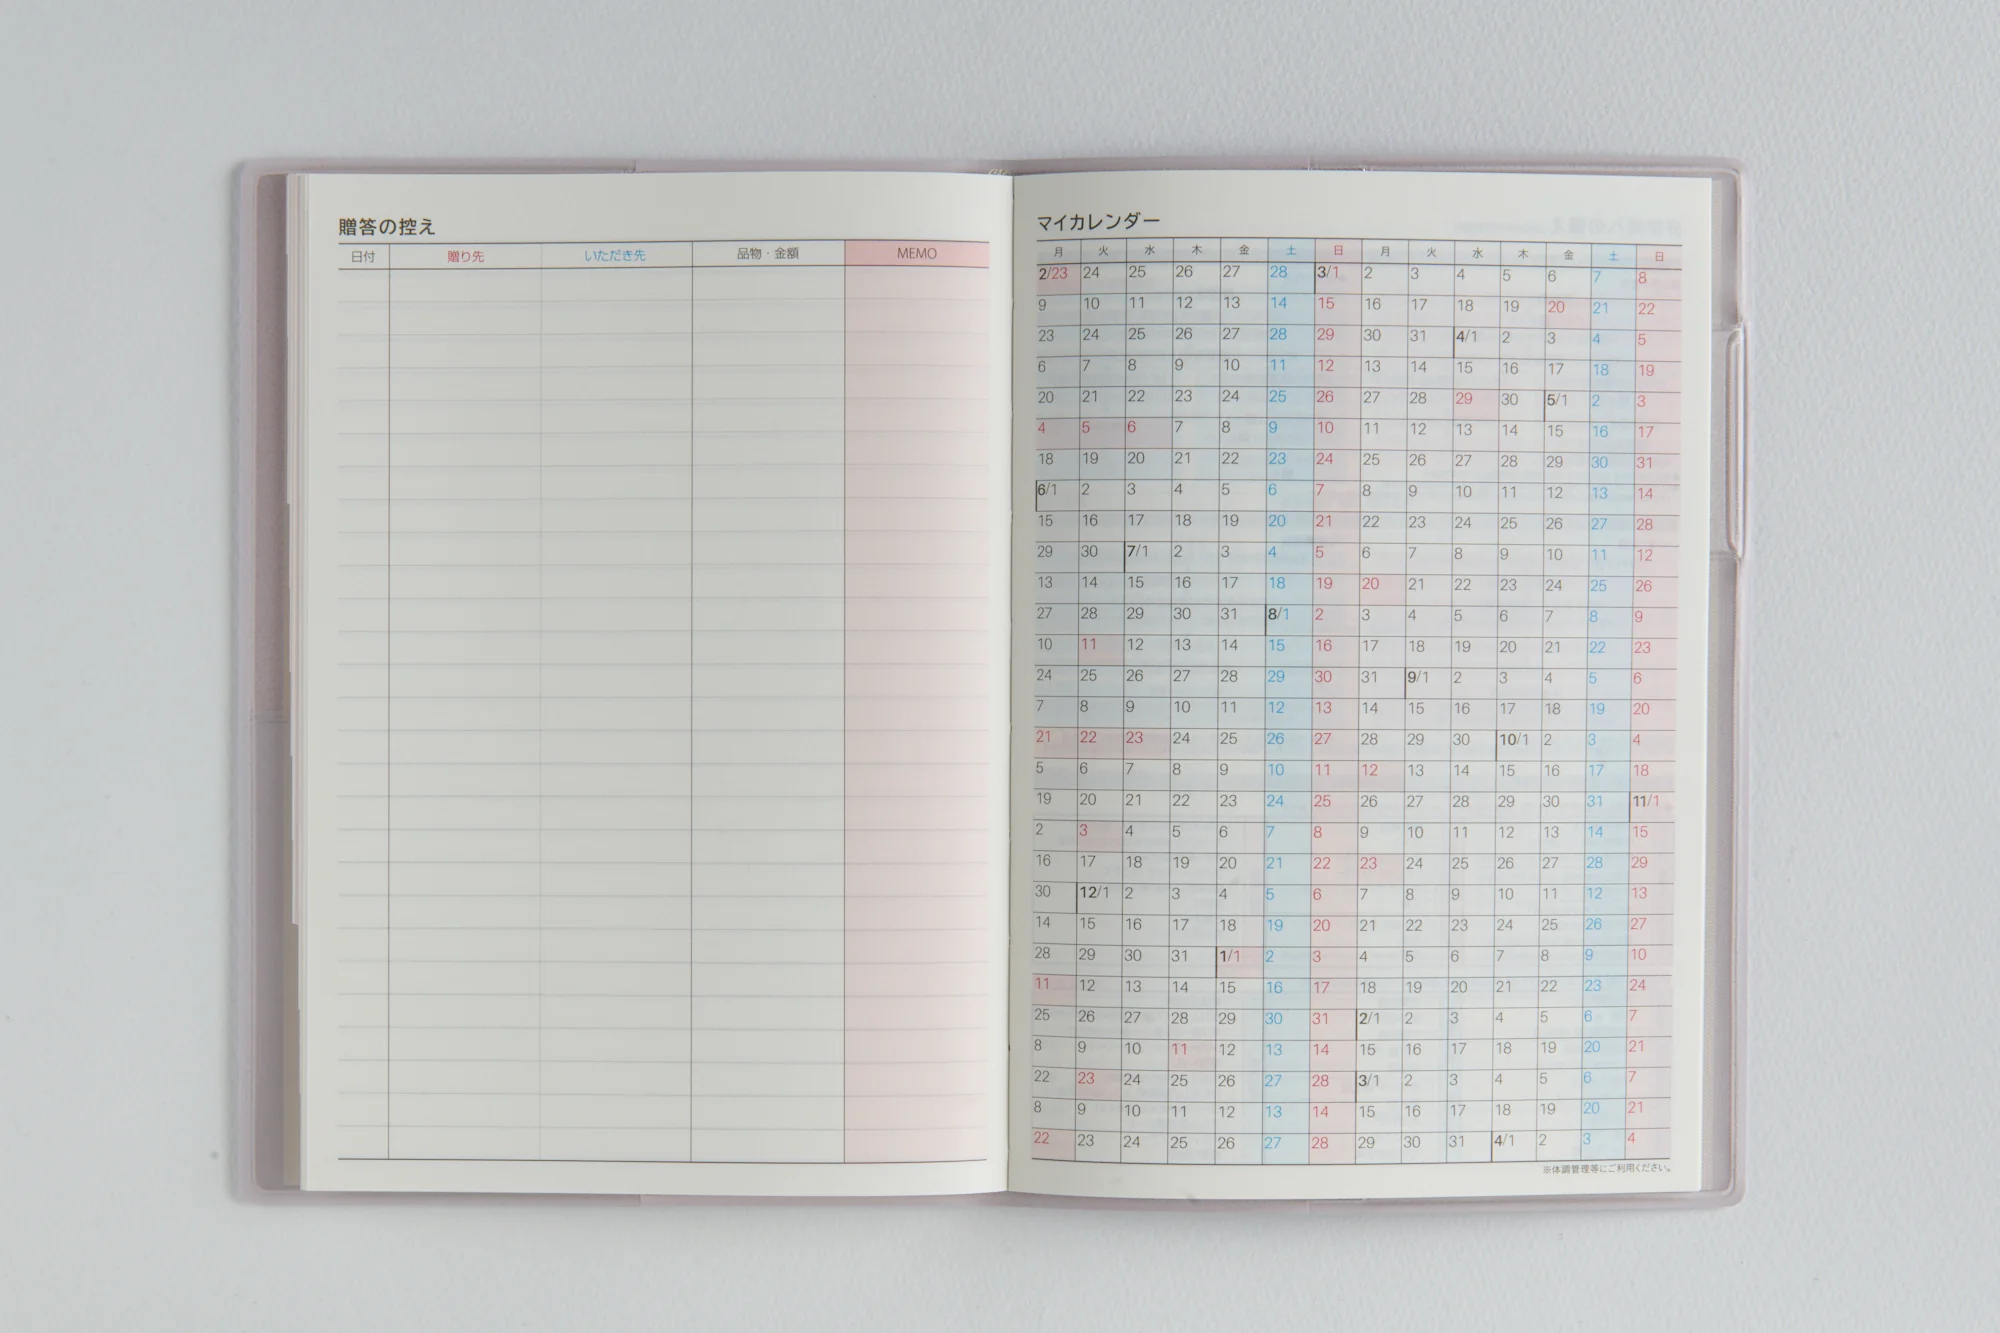 贈答の控え
日付 贈り先 いただき先 品物・金額 MEMO
マイカレンダー
月 火 水 木 金 土 日 月 火 水 木 金 土 日
2/23 24 25 26 27 28 3/1 2 3 4 5 6 7 8
9 10 11 12 13 14 15 16 17 18 19 20 21 22
23 24 25 26 27 28 29 30 31 4/1 2 3 4 5
6 7 8 9 10 11 12 13 14 15 16 17 18 19
20 21 22 23 24 25 26 27 28 29 30 5/1 2 3
4 5 6 7 8 9 10 11 12 13 14 15 16 17
18 19 20 21 22 23 24 25 26 27 28 29 30 31
6/1 2 3 4 5 6 7 8 9 10 11 12 13 14
15 16 17 18 19 20 21 22 23 24 25 26 27 28
29 30 7/1 2 3 4 5 6 7 8 9 10 11 12
13 14 15 16 17 18 19 20 21 22 23 24 25 26
27 28 29 30 31 8/1 2 3 4 5 6 7 8 9
10 11 12 13 14 15 16 17 18 19 20 21 22 23
24 25 26 27 28 29 30 31 9/1 2 3 4 5 6
7 8 9 10 11 12 13 14 15 16 17 18 19 20
21 22 23 24 25 26 27 28 29 30 10/1 2 3 4
5 6 7 8 9 10 11 12 13 14 15 16 17 18
19 20 21 22 23 24 25 26 27 28 29 30 31 11/1
2 3 4 5 6 7 8 9 10 11 12 13 14 15
16 17 18 19 20 21 22 23 24 25 26 27 28 29
30 12/1 2 3 4 5 6 7 8 9 10 11 12 13
14 15 16 17 18 19 20 21 22 23 24 25 26 27
28 29 30 31 1/1 2 3 4 5 6 7 8 9 10
11 12 13 14 15 16 17 18 19 20 21 22 23 24
25 26 27 28 29 30 31 2/1 2 3 4 5 6 7
8 9 10 11 12 13 14 15 16 17 18 19 20 21
22 23 24 25 26 27 28 3/1 2 3 4 5 6 7
8 9 10 11 12 13 14 15 16 17 18 19 20 21
22 23 24 25 26 27 28 29 30 31 4/1 2 3 4
※体調管理等にご利用ください。